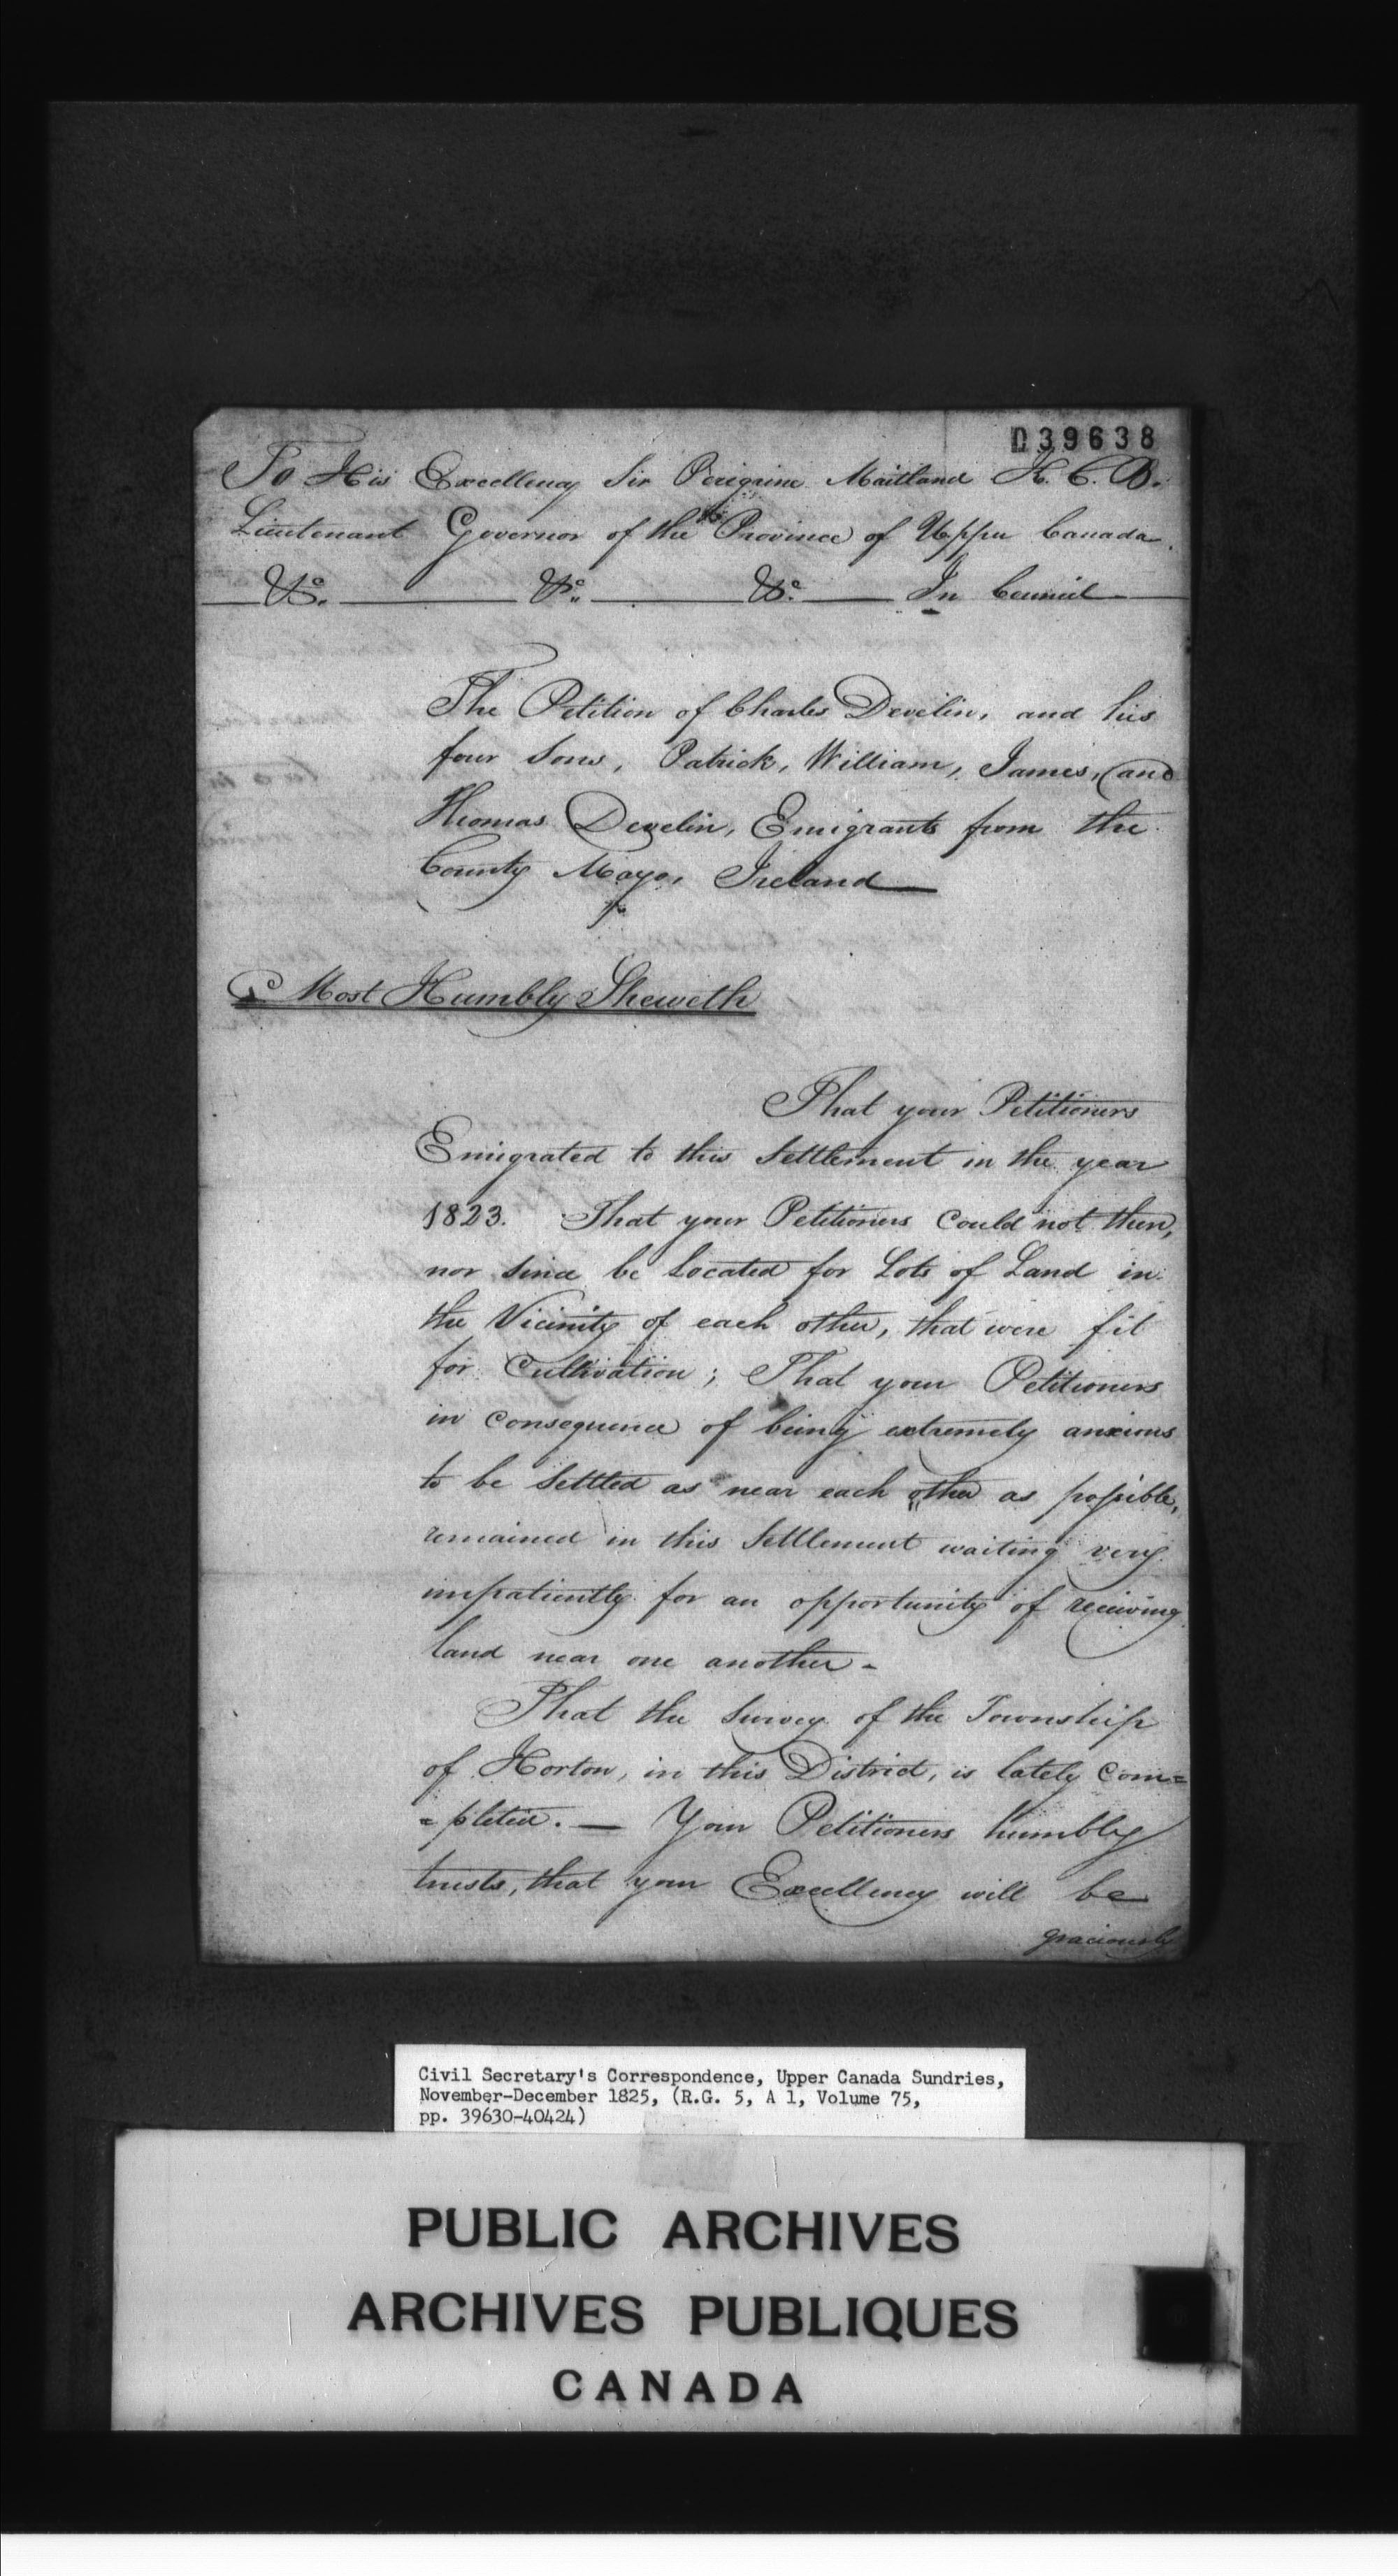 039638
To His Excellency Sir Peregrine Maitland K. C. B.
Lieutenant Governor of the Province of Upper Canada
&c. &c. &c. In Council
The Petition of Charles Develin, and his
four Sons, Patrick, William, James, and
Thomas Develin, Emigrants from the
County Mayo, Ireland
Most Humbly Sheweth
That your Petitioners
Emigrated to this Settlement in the year
1823. That your Petitioners Could not then,
nor since be Located for Lots of Land in
the Vicinity of each other, that were fit
for Cultivation; That your Petitioners
in Consequence of being extremely anxious
to be Settled as near each other as possible,
remained in this Settlement waiting very
impatiently for an opportunity of receiving
land near one another -
That the Survey of the Township
of Horton, in this District, is lately Com=
=pleted. — Your Petitioners humbly
trusts, that your Excellency will be
graciously
Civil Secretary's Correspondence, Upper Canada Sundries,
November-December 1825, (R.G. 5, A 1, Volume 75,
pp. 39630-40424)
PUBLIC ARCHIVES
ARCHIVES PUBLIQUES
CANADA